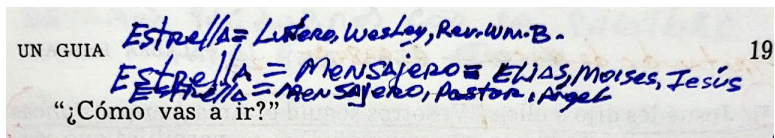 Estrella = Lutero, Wesley, Rev. Wm. B.
UN GUIA 19
Estrella = Mensajero = ELIAS, Moises, Jesús
Estrella = Mensajero, Pastor, Angel
“¿Cómo vas a ir?”